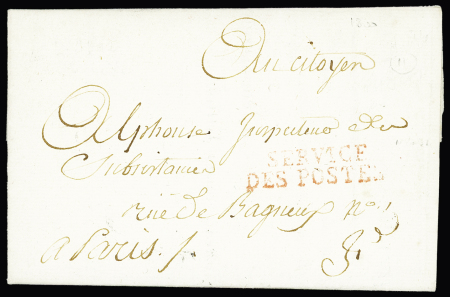 Au citoyen
Alphonse Inspecteur des
Subsistances
SERVICE
DES POSTES
rue de Bagneux no. 1
a Paris